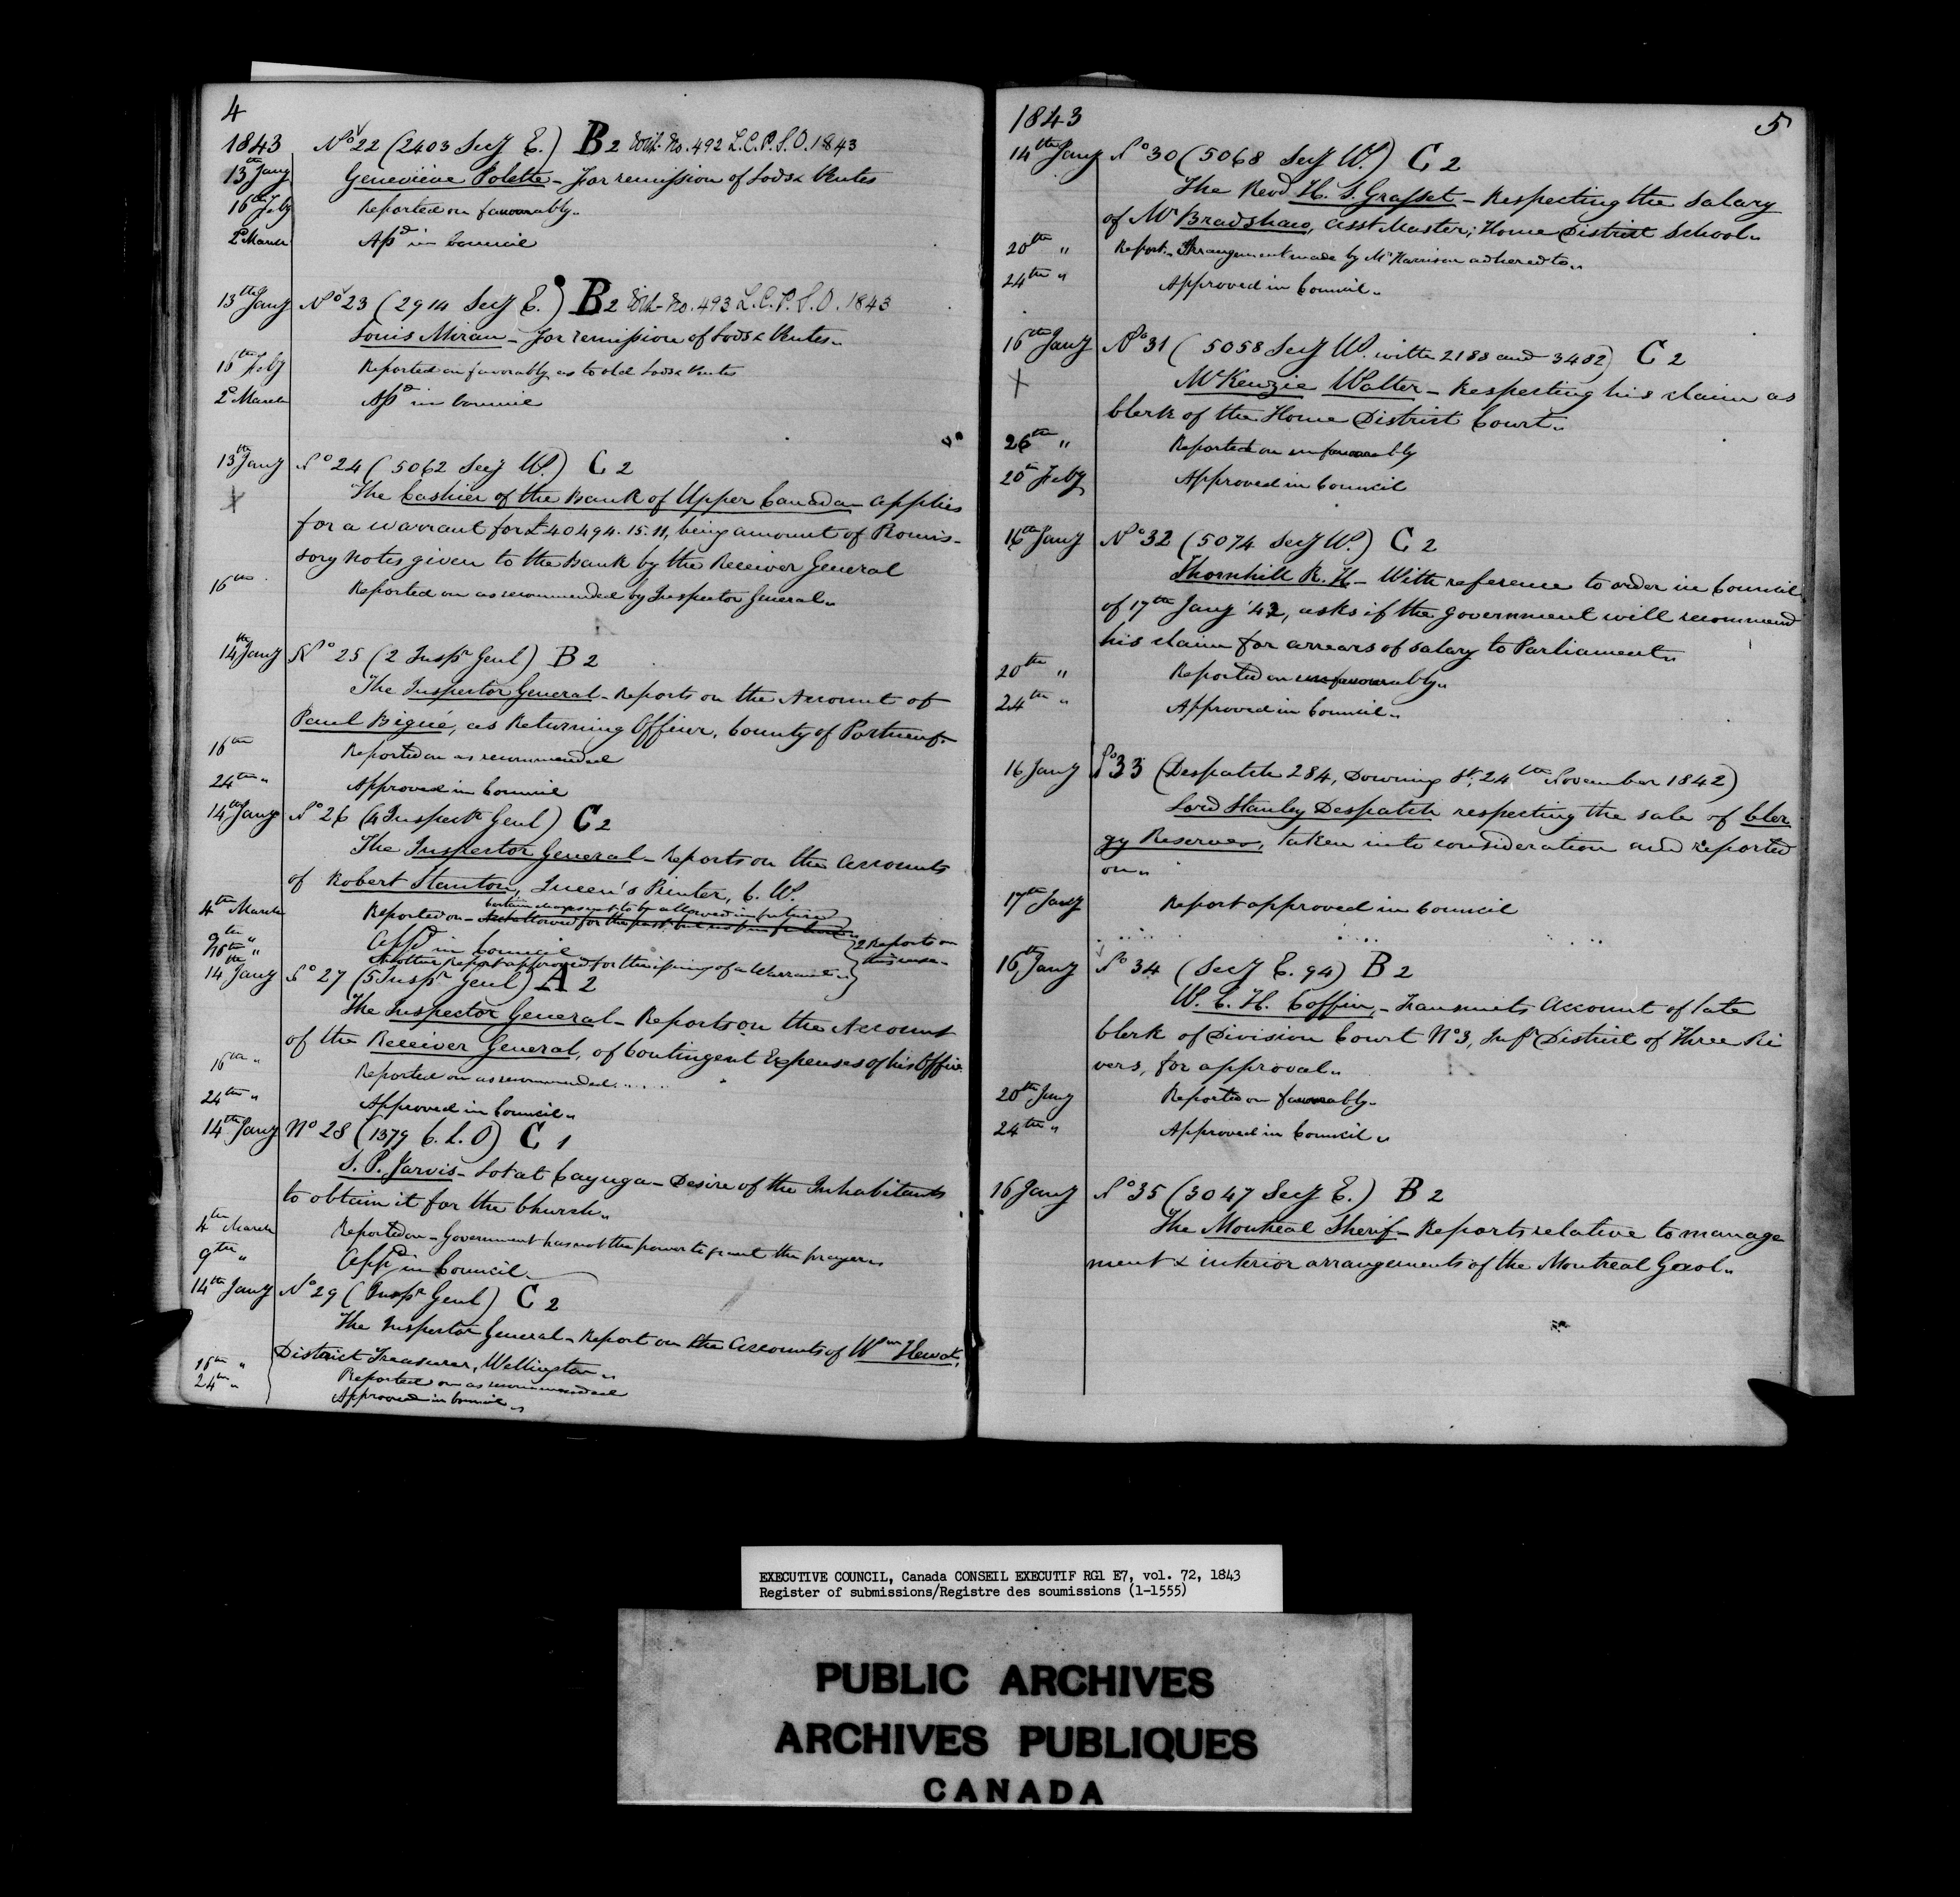 4
1843 No 22 (2403 Secy E.) B2 With No. 492 L.C.P.S.O. 1843
13th Jany Genevieve Polette - For remission of Lods & Ventes
16th Feby Reported on favourably.
2d March Apd in Council
13th Jany No 23 (2914 Secy E.) B2 With No. 493 L.C.P.S.O. 1843
Louis Miran - For remission of Lods & Ventes.
16th Feby Reported on favorably as to old Lods & Ventes
2d March Apd in Council
13th Jany No 24 (5062 Secy W.) C2
X The Cashier of the Bank of Upper Canada applies
for a warrant for £40494.15.11, being amount of Promis-
sory notes given to the Bank by the Receiver General
16th Reported on as recommended by Inspector General.
14th Jany No 25 (2 Inspr Genl) B2
The Inspector General - Reports on the Account of
Paul Bigué, as Returning Officer, County of Portneuf.
16th Reported on as recommended
24th " Approved in Council
14th Jany No 26 (4 Inspectr Genl) C2
The Inspector General - Reports on the Accounts
of Robert Stanton, Queen's Printer, C.W.
certain charges not to be allowed in future
4th March Reported on - Not allowed for the past, but not for future
9th " Appd in Council
" Another Report approved for the issuing of a Warrant
2 Reports on this case
14 Jany No 27 (5 Inspr Genl) A2
The Inspector General - Reports on the Account
of the Receiver General, of Contingent Expenses of his Office
16th " Reported on as recommended
24th " Approved in Council "
14th Jany No 28 (1379 C.L.O) C1
S. P. Jarvis - Lot at Cayuga - Desire of the Inhabitants
to obtain it for the Church "
4th March Reported on - Government has not the power to grant the prayer "
9th " Appd in Council
14th Jany No 29 (Inspr Genl) C2
The Inspector General - Report on the Accounts of Wm Hewat,
District Treasurer, Wellington "
16th " Reported on as recommended
24th " Approved in Council "
1843 5
14th Jany No 30 (5068 Secy W.) C2
The Revd H. S. Grasset - Respecting the salary
of Mr Bradshaw, Asst Master, Home District School "
20th " Report - Arrangement made by Mr Harrison adhered to "
24th " Approved in Council "
16th Jany No 31 (5058 Secy W. with 2188 and 3482) C2
X McKenzie Walter - Respecting his claim as
Clerk of the Home District Court "
26th " Reported on unfavourably
20th Feby Approved in Council
16th Jany No 32 (5074 Secy W.) C2
Thornhill R. H - With reference to order in Council
of 17th Jany '42, asks if the Government will recommend
his claim for arrears of salary to Parliament "
20th " Reported on unfavourably "
24th " Approved in Council "
16 Jany No 33 (Despatch 284, Downing St, 24th November 1842)
Lord Stanley Despatch respecting the sale of Cler
gy Reserves, taken into consideration and reported
on "
17th Jany Report approved in Council
16th Jany No 34 (Secy E. 94) B2
W. C. H. Coffin, - Transmits Account of late
Clerk of Division Court No 3, Infr District of Three Ri
vers, for approval "
20th Jany Reported on favourably "
24th " Approved in Council "
16 Jany No 35 (3047 Secy E.) B2
The Montreal Sherif - Reports relative to manage
ment & interior arrangements of the Montreal Gaol "
EXECUTIVE COUNCIL, Canada CONSEIL EXECUTIF RG1 E7, vol. 72, 1843
Register of submissions/Registre des soumissions (1-1555)
PUBLIC ARCHIVES
ARCHIVES PUBLIQUES
CANADA